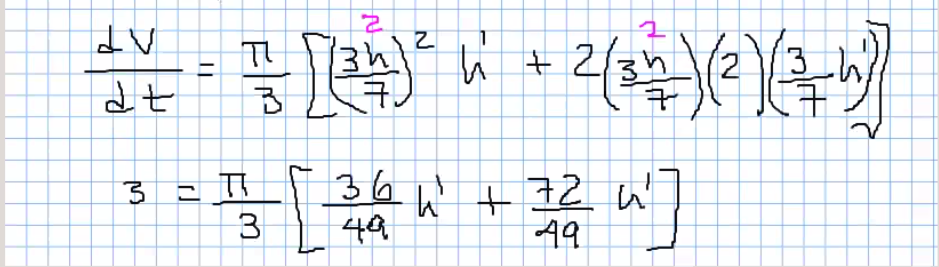 dV/dt = π/3 [(3h/7)² h' + 2(3h/7)(2)(3/7 h')] 2 2
3 = π/3 [36/49 h' + 72/49 h']